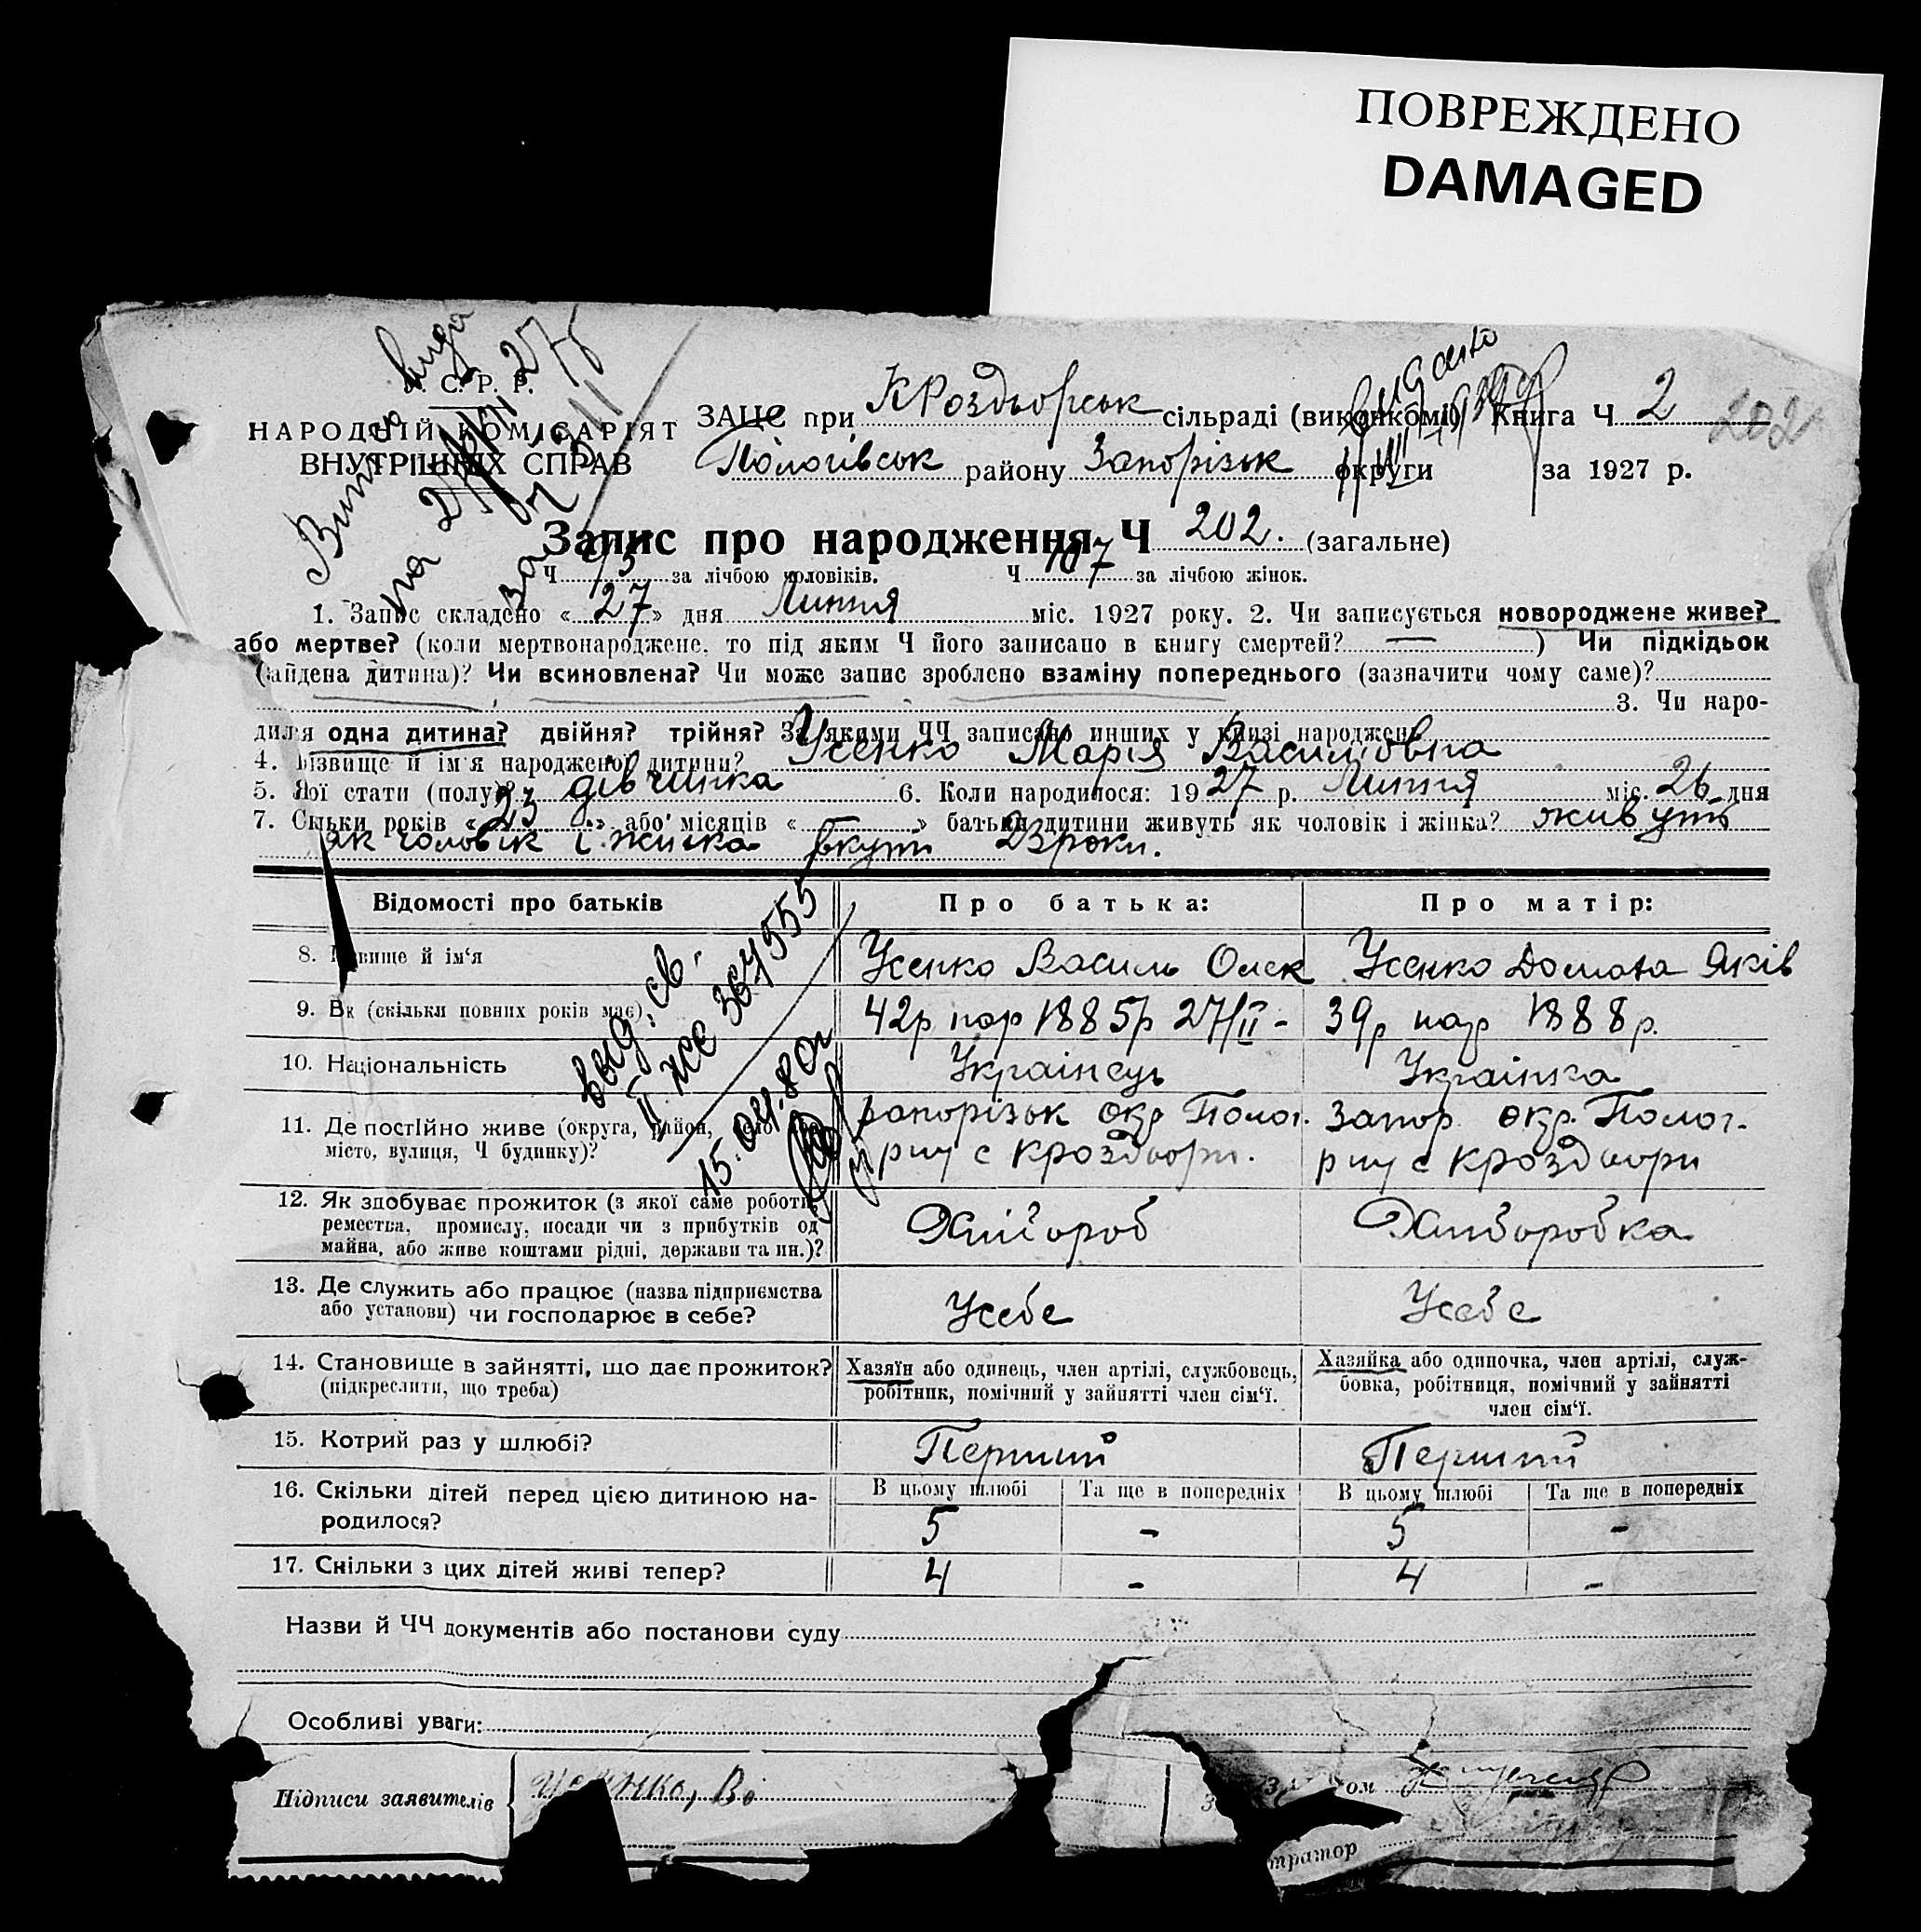 ПОВРЕЖДЕНО
DAMAGED
С. Р. Р.
НАРОДНІЙ КОМІСАРІЯТ
ВНУТРІШНІХ СПРАВ
ЗАЦС при КРоздьорськ сільраді (виконкомі) Книга Ч 2 202
Пологівськ району Запорізьк округи за 1927 р.
Запис про народження Ч 202. (загальне)
Ч 95 за лічбою чоловіків. Ч 107 за лічбою жінок.
1. Запис складено « 27 » дня Липня міс. 1927 року. 2. Чи записується новороджене живе?
або мертве? (коли мертвонароджене, то під яким Ч його записано в книгу смертей? — ) Чи підкідьок
(знайдена дитина)? Чи всиновлена? Чи може запис зроблено взаміну попереднього (зазначити чому саме)?
3. Чи наро-
дилася одна дитина? двійня? трійня? За якими ЧЧ записано инших у книзі народжень
4. Прізвище й ім'я народженої дитини? Усенко Марія Василовна
5. Якої стати (полу)? дівчинка 6. Коли народилося: 1927 р. Липня міс. 26 дня
7. Скільки років « 23 » або місяців « » батьки дитини живуть як чоловік і жінка? живуть
як чоловік і жинка вкупі 23 роки.
Відомості про батьків Про батька: Про матір:
8. Прізвище й ім'я Усенко Василь Олек Усенко Домаха Яків
9. Вік (скільки повних років має) 42р нар 1885р 27/ІІ - 39р нар 1888р.
10. Національність Українець Українка
11. Де постійно живе (округа, район, село або
місто, вулиця, Ч будинку)?
Запорізьк окр Полог. рну с Кроздьори.
Запор. окр. Полог. рну с Кроздьори
12. Як здобуває прожиток (з якої саме роботи,
ремества, промислу, посади чи з прибутків од
майна, або живе коштами рідні, держави та ин.)?
Хлібороб Хлиборобка
13. Де служить або працює (назва підприємства
або установи) чи господарює в себе?
Усебе Усебе
14. Становище в зайнятті, що дає прожиток?
(підкреслити, що треба)
Хазяїн або одинець, член артілі, службовець,
робітник, помічний у зайнятті член сім'ї.
Хазяйка або одиночка, член артілі, служ-
бовка, робітниця, помічний у зайнятті
член сім'ї.
15. Котрий раз у шлюбі? Перший Перший
16. Скільки дітей перед цією дитиною на-
родилося?
В цьому шлюбі Та ще в попередніх В цьому шлюбі Та ще в попередніх
5 - 5 -
17. Скільки з цих дітей живі тепер? 4 - 4 -
выд. св.
ІІ ЖС 367555
15.04.80г
Назви й ЧЧ документів або постанови суду
Особливі уваги:
Підписи заявителів